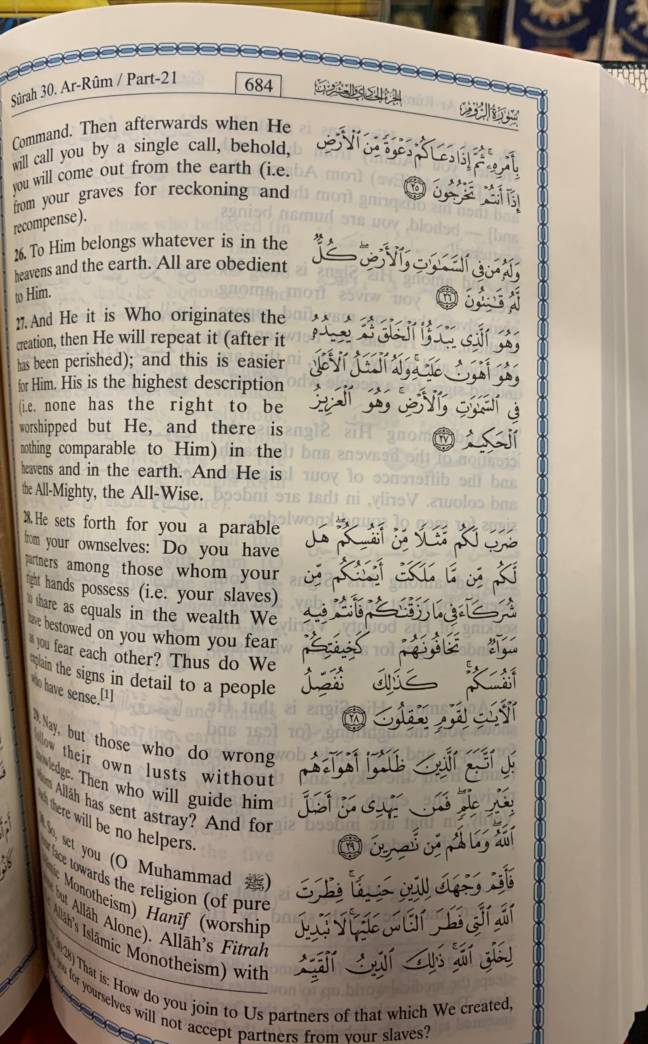 Sûrah 30. Ar-Rûm / Part-21
684
الجزء الحادي والعشرون
سورة الروم
Command. Then afterwards when He
will call you by a single call, behold,
you will come out from the earth (i.e.
from your graves for reckoning and
recompense).
26. To Him belongs whatever is in the
heavens and the earth. All are obedient
to Him.
27. And He it is Who originates the
creation, then He will repeat it (after it
has been perished); and this is easier
for Him. His is the highest description
(i.e. none has the right to be
worshipped but He, and there is
nothing comparable to Him) in the
heavens and in the earth. And He is
the All-Mighty, the All-Wise.
28. He sets forth for you a parable
from your ownselves: Do you have
partners among those whom your
right hands possess (i.e. your slaves)
to share as equals in the wealth We
have bestowed on you whom you fear
as you fear each other? Thus do We
explain the signs in detail to a people
who have sense.[1]
29. Nay, but those who do wrong
follow their own lusts without
knowledge. Then who will guide him
whom Allâh has sent astray? And for
such there will be no helpers.
30. So, set you (O Muhammad ﷺ)
your face towards the religion (of pure
Islâmic Monotheism) Hanîf (worship
none but Allâh Alone). Allâh's Fitrah
(i.e. Allâh's Islâmic Monotheism) with
بِأَمْرِهِۦ ثُمَّ إِذَا دَعَاكُمْ دَعْوَةً مِّنَ ٱلْأَرْضِ
إِذَآ أَنتُمْ تَخْرُجُونَ ٢٥
وَلَهُۥ مَن فِى ٱلسَّمَٰوَٰتِ وَٱلْأَرْضِ ۖ كُلٌّ
لَّهُۥ قَٰنِتُونَ ٢٦
وَهُوَ ٱلَّذِى يَبْدَؤُا۟ ٱلْخَلْقَ ثُمَّ يُعِيدُهُۥ
وَهُوَ أَهْوَنُ عَلَيْهِ ۚ وَلَهُ ٱلْمَثَلُ ٱلْأَعْلَىٰ
فِى ٱلسَّمَٰوَٰتِ وَٱلْأَرْضِ ۚ وَهُوَ ٱلْعَزِيزُ
ٱلْحَكِيمُ ٢٧
ضَرَبَ لَكُم مَّثَلًا مِّنْ أَنفُسِكُمْ ۖ هَل
لَّكُم مِّن مَّا مَلَكَتْ أَيْمَٰنُكُم مِّن
شُرَكَآءَ فِى مَا رَزَقْنَٰكُمْ فَأَنتُمْ فِيهِ
سَوَآءٌ تَخَافُونَهُمْ كَخِيفَتِكُمْ
أَنفُسَكُمْ ۚ كَذَٰلِكَ نُفَصِّلُ
ٱلْءَايَٰتِ لِقَوْمٍ يَعْقِلُونَ ٢٨
بَلِ ٱتَّبَعَ ٱلَّذِينَ ظَلَمُوٓا۟ أَهْوَآءَهُم
بِغَيْرِ عِلْمٍ ۖ فَمَن يَهْدِى مَنْ أَضَلَّ
ٱللَّهُ ۖ وَمَا لَهُم مِّن نَّٰصِرِينَ ٢٩
فَأَقِمْ وَجْهَكَ لِلدِّينِ حَنِيفًا ۚ فِطْرَتَ
ٱللَّهِ ٱلَّتِى فَطَرَ ٱلنَّاسَ عَلَيْهَا ۚ لَا تَبْدِيلَ
لِخَلْقِ ٱللَّهِ ۚ ذَٰلِكَ ٱلدِّينُ ٱلْقَيِّمُ
30:28) That is: How do you join to Us partners of that which We created,
you for yourselves will not accept partners from your slaves?